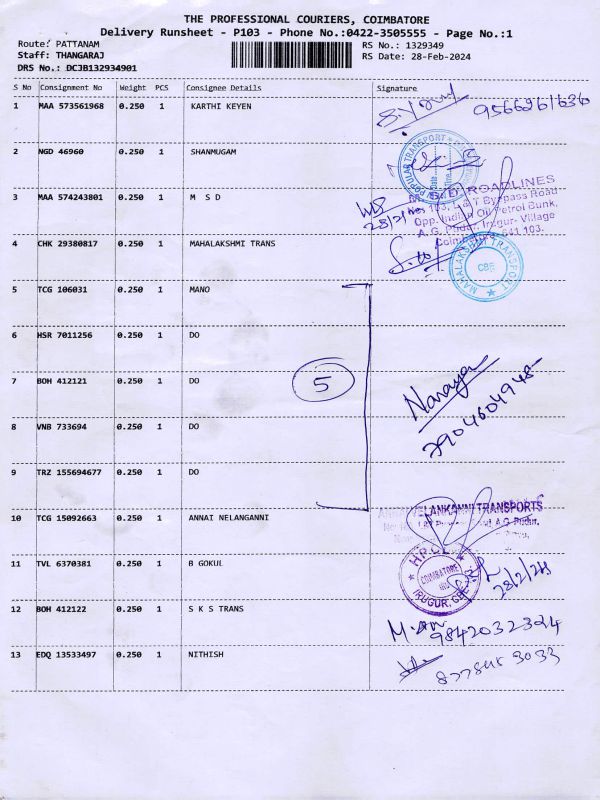 THE PROFESSIONAL COURIERS, COIMBATORE
Delivery Runsheet - P103 - Phone No.:0422-3505555 - Page No.:1
Route: PATTANAM
RS No.: 1329349
Staff: THANGARAJ
RS Date: 28-Feb-2024
DRS No.: DCJB132934901
S No Consignment No Weight PCS Consignee Details Signature
1 MAA 573561968 0.250 1 KARTHI KEYEN
2 NGD 46960 0.250 1 SHANMUGAM
POPULAR TRANSPORT
3 MAA 574243801 0.250 1 M S D
ROADLINES
Bypass Road
Opp. Indian Oil Petrol Bunk,
A. G. Pudur, Irugur- Village
641 103.
4 CHK 29380817 0.250 1 MAHALAKSHMI TRANS
MAHALAKSHMI TRANSPORT
CBE
5 TCG 106031 0.250 1 MANO
6 HSR 7011256 0.250 1 DO
7 BOH 412121 0.250 1 DO
5
Naraya
7904604948
8 VNB 733694 0.250 1 DO
9 TRZ 155694677 0.250 1 DO
10 TCG 15092663 0.250 1 ANNAI NELANGANNI
VELANKANNI TRANSPORTS
11 TVL 6370381 0.250 1 B GOKUL
COIMBATORE
IRUGUR, CBE
28/2/24
12 BOH 412122 0.250 1 S K S TRANS
9842032324
13 EDQ 13533497 0.250 1 NITHISH